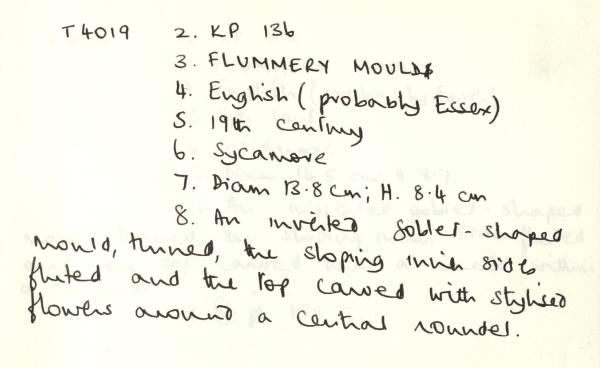 T4019 2. KP 136
3. FLUMMERY MOULDS
4. English (probably Essex)
5. 19th century
6. Sycamore
7. Diam 13.8 cm; H. 8.4 cm
8. An inverted goblet-shaped
mould, turned, the sloping inner sides
fluted and the top carved with stylised
flowers around a central roundel.